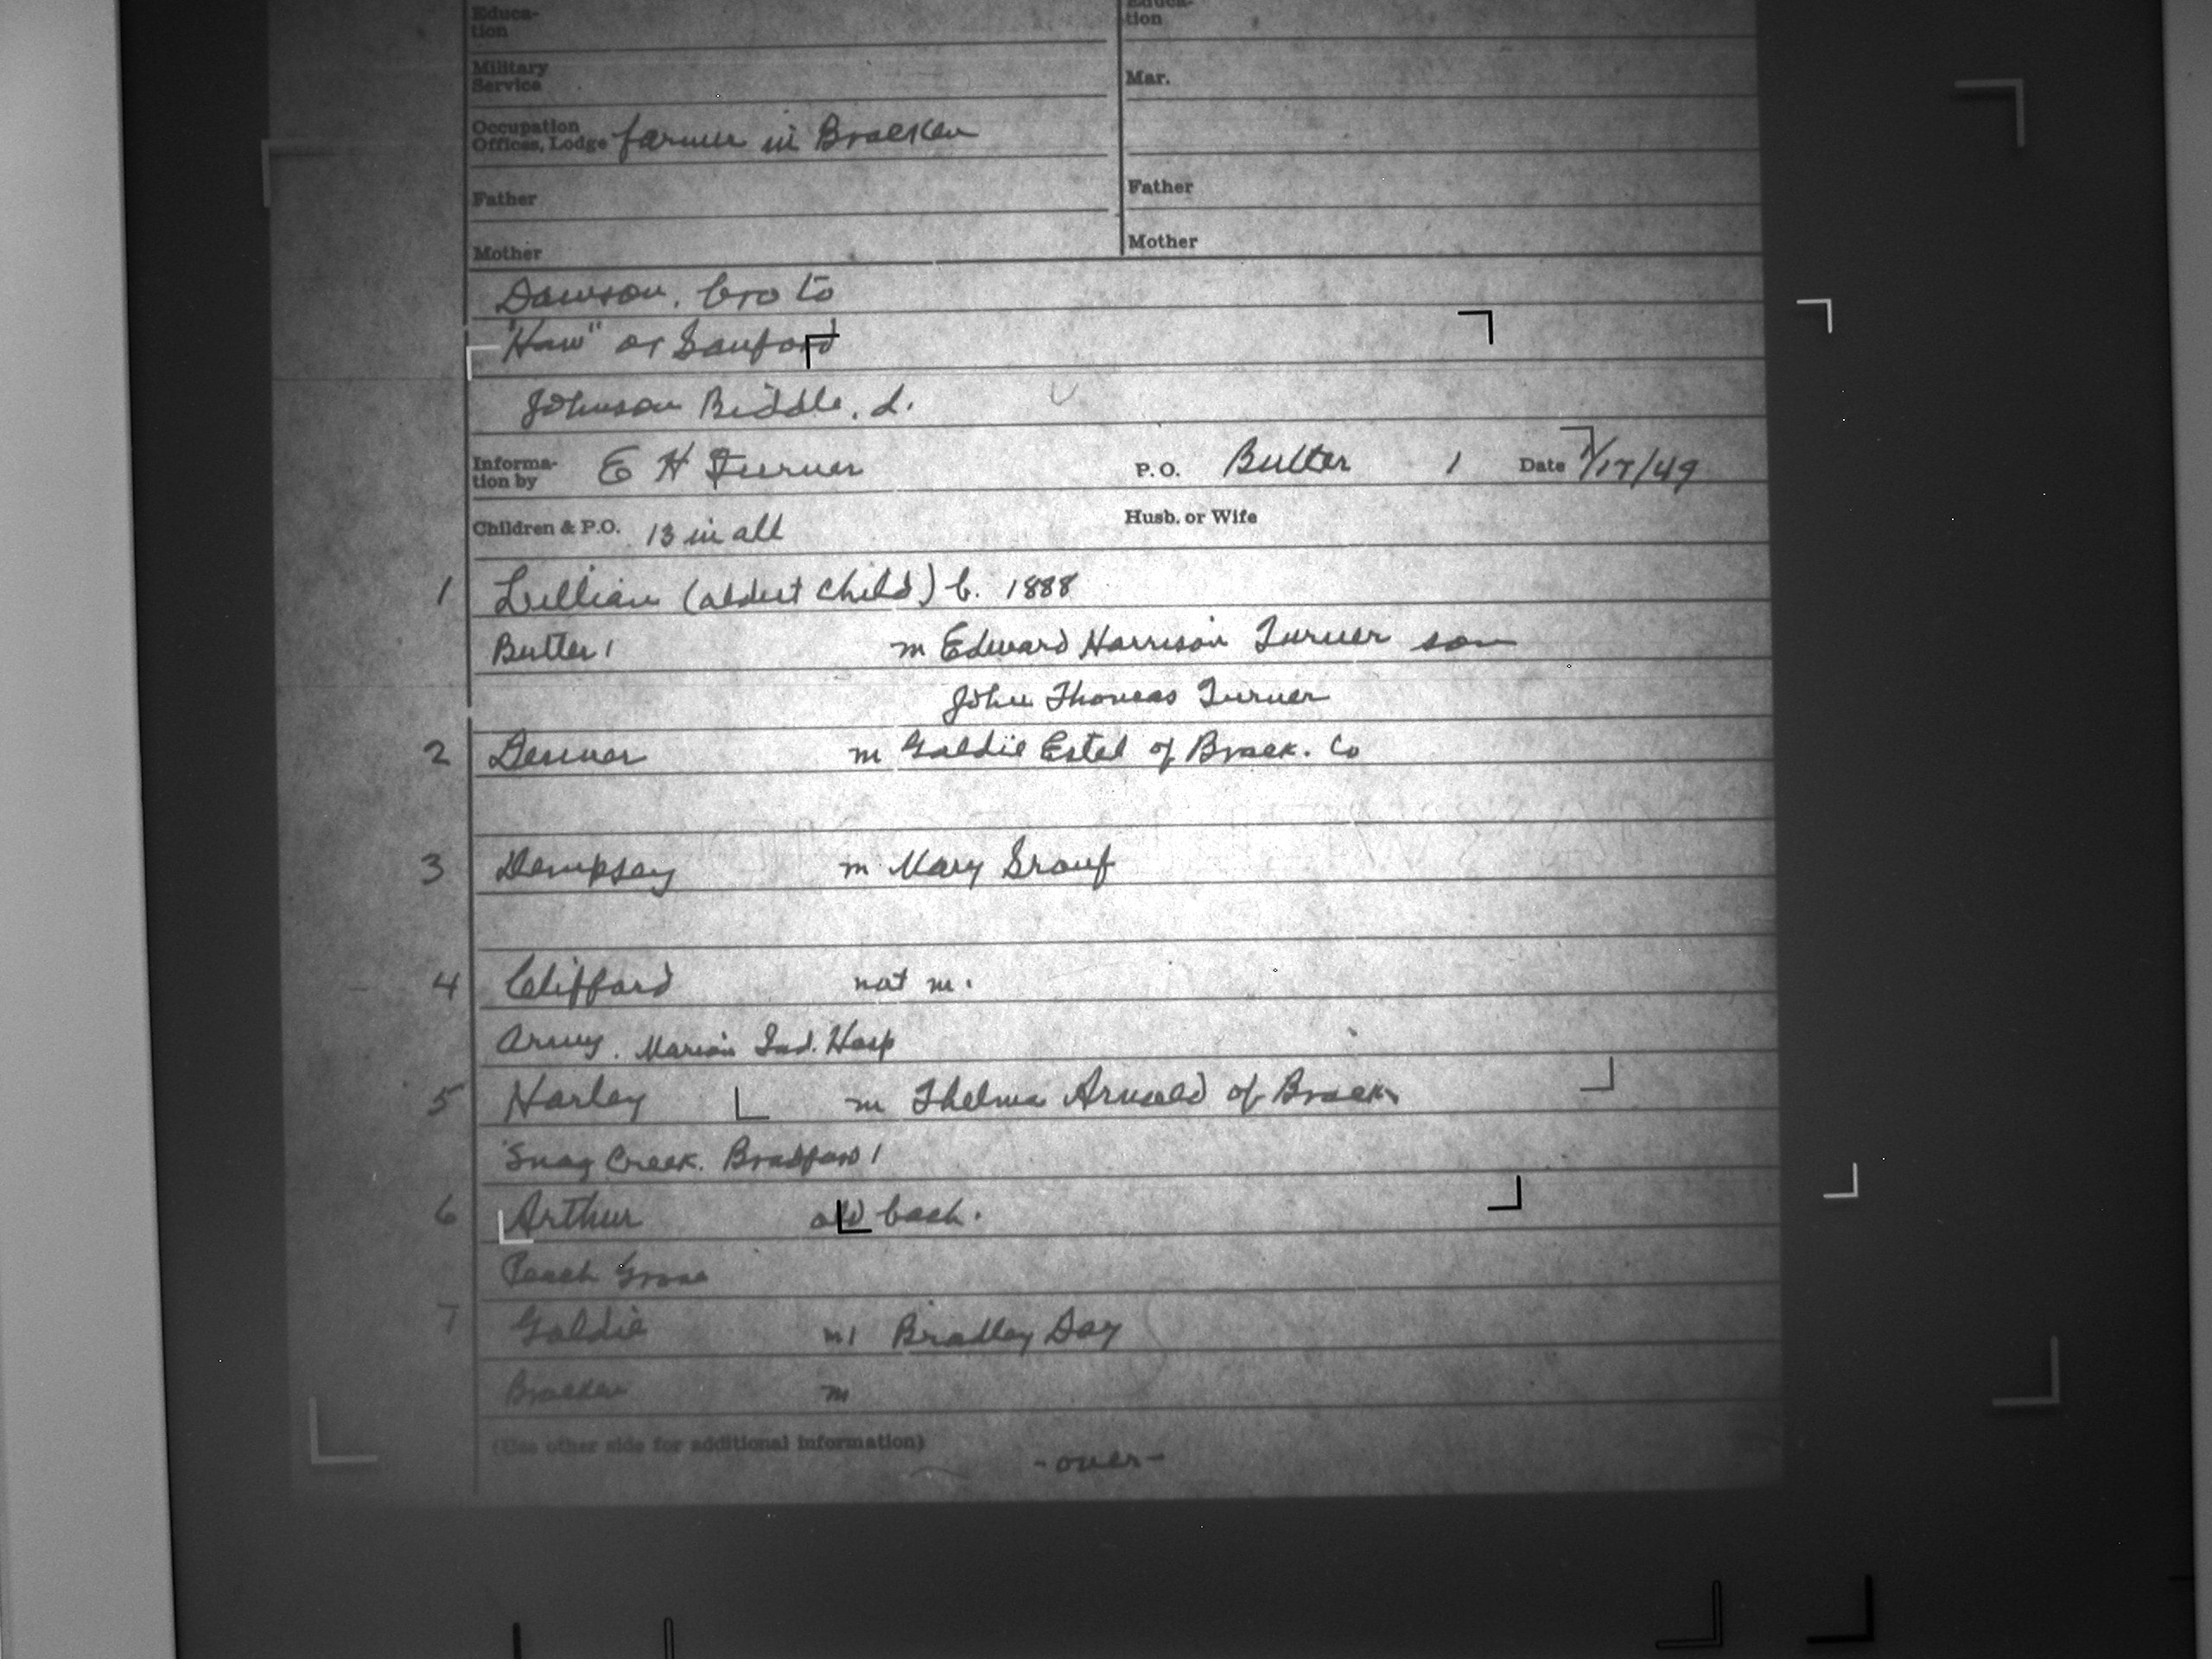 Educa- Educa-
tion tion
Military
Service Mar.
Occupation
Offices, Lodge farmer in Bracken
Father Father
Mother Mother
Dawson, bro to
"Haw" or Sanford
Johnson Biddle, d.
Informa-
tion by E H Turner P.O. Butler 1 Date 7/17/49
Children & P.O. 13 in all Husb. or Wife
1 Lillian (oldest child) b. 1888
Butler 1 m Edward Harrison Turner son
John Thomas Turner
2 Denver m Goldie Estel of Brack. Co
3 Dempsey m Mary Srouf
4 Clifford not m.
Army. Marion Ind. Hosp
5 Harley m Thelma Arnold of Brack.
Snag Creek. Bradford 1
6 Arthur old bach.
Peach Grove
7 Goldie m1 Bradley Day
Bracken m
(Use other side for additional information)
-over-